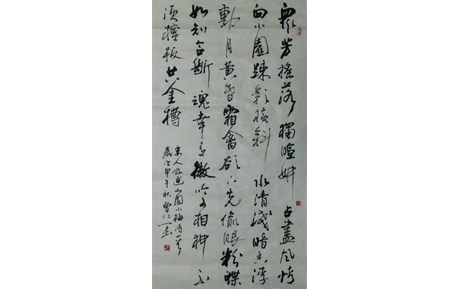 眾芳搖落獨暄妍 占盡風情
向小園 疎影橫斜 水清淺暗香浮
動月黃昏 霜禽欲下先偷眼 粉蝶
如知合斷魂 幸有微吟可相狎 不
須檀板共金樽
宋人林逋山園小梅詩一首
歲次甲午秋